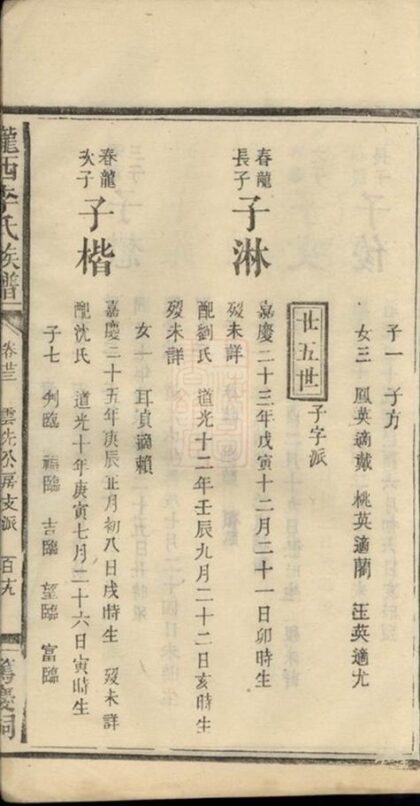 子一 子方
女三 鳳英適戴 桃英適藺 玨英適尤
廿五世 子字派
春龍長子 子淋
嘉慶二十三年戊寅十二月二十一日卯時生
歿未詳
配劉氏 道光十二年壬辰九月二十二日亥時生
歿未詳
女 耳貞適賴
春龍次子 子楷
嘉慶二十五年庚辰正月初八日戌時生 歿未詳
配沈氏 道光十年庚寅七月二十六日寅時生
子七 列臨 福臨 吉臨 望臨 富臨
隴西李氏族譜 卷廿三 雲先公房支派 百十九 篤慶祠